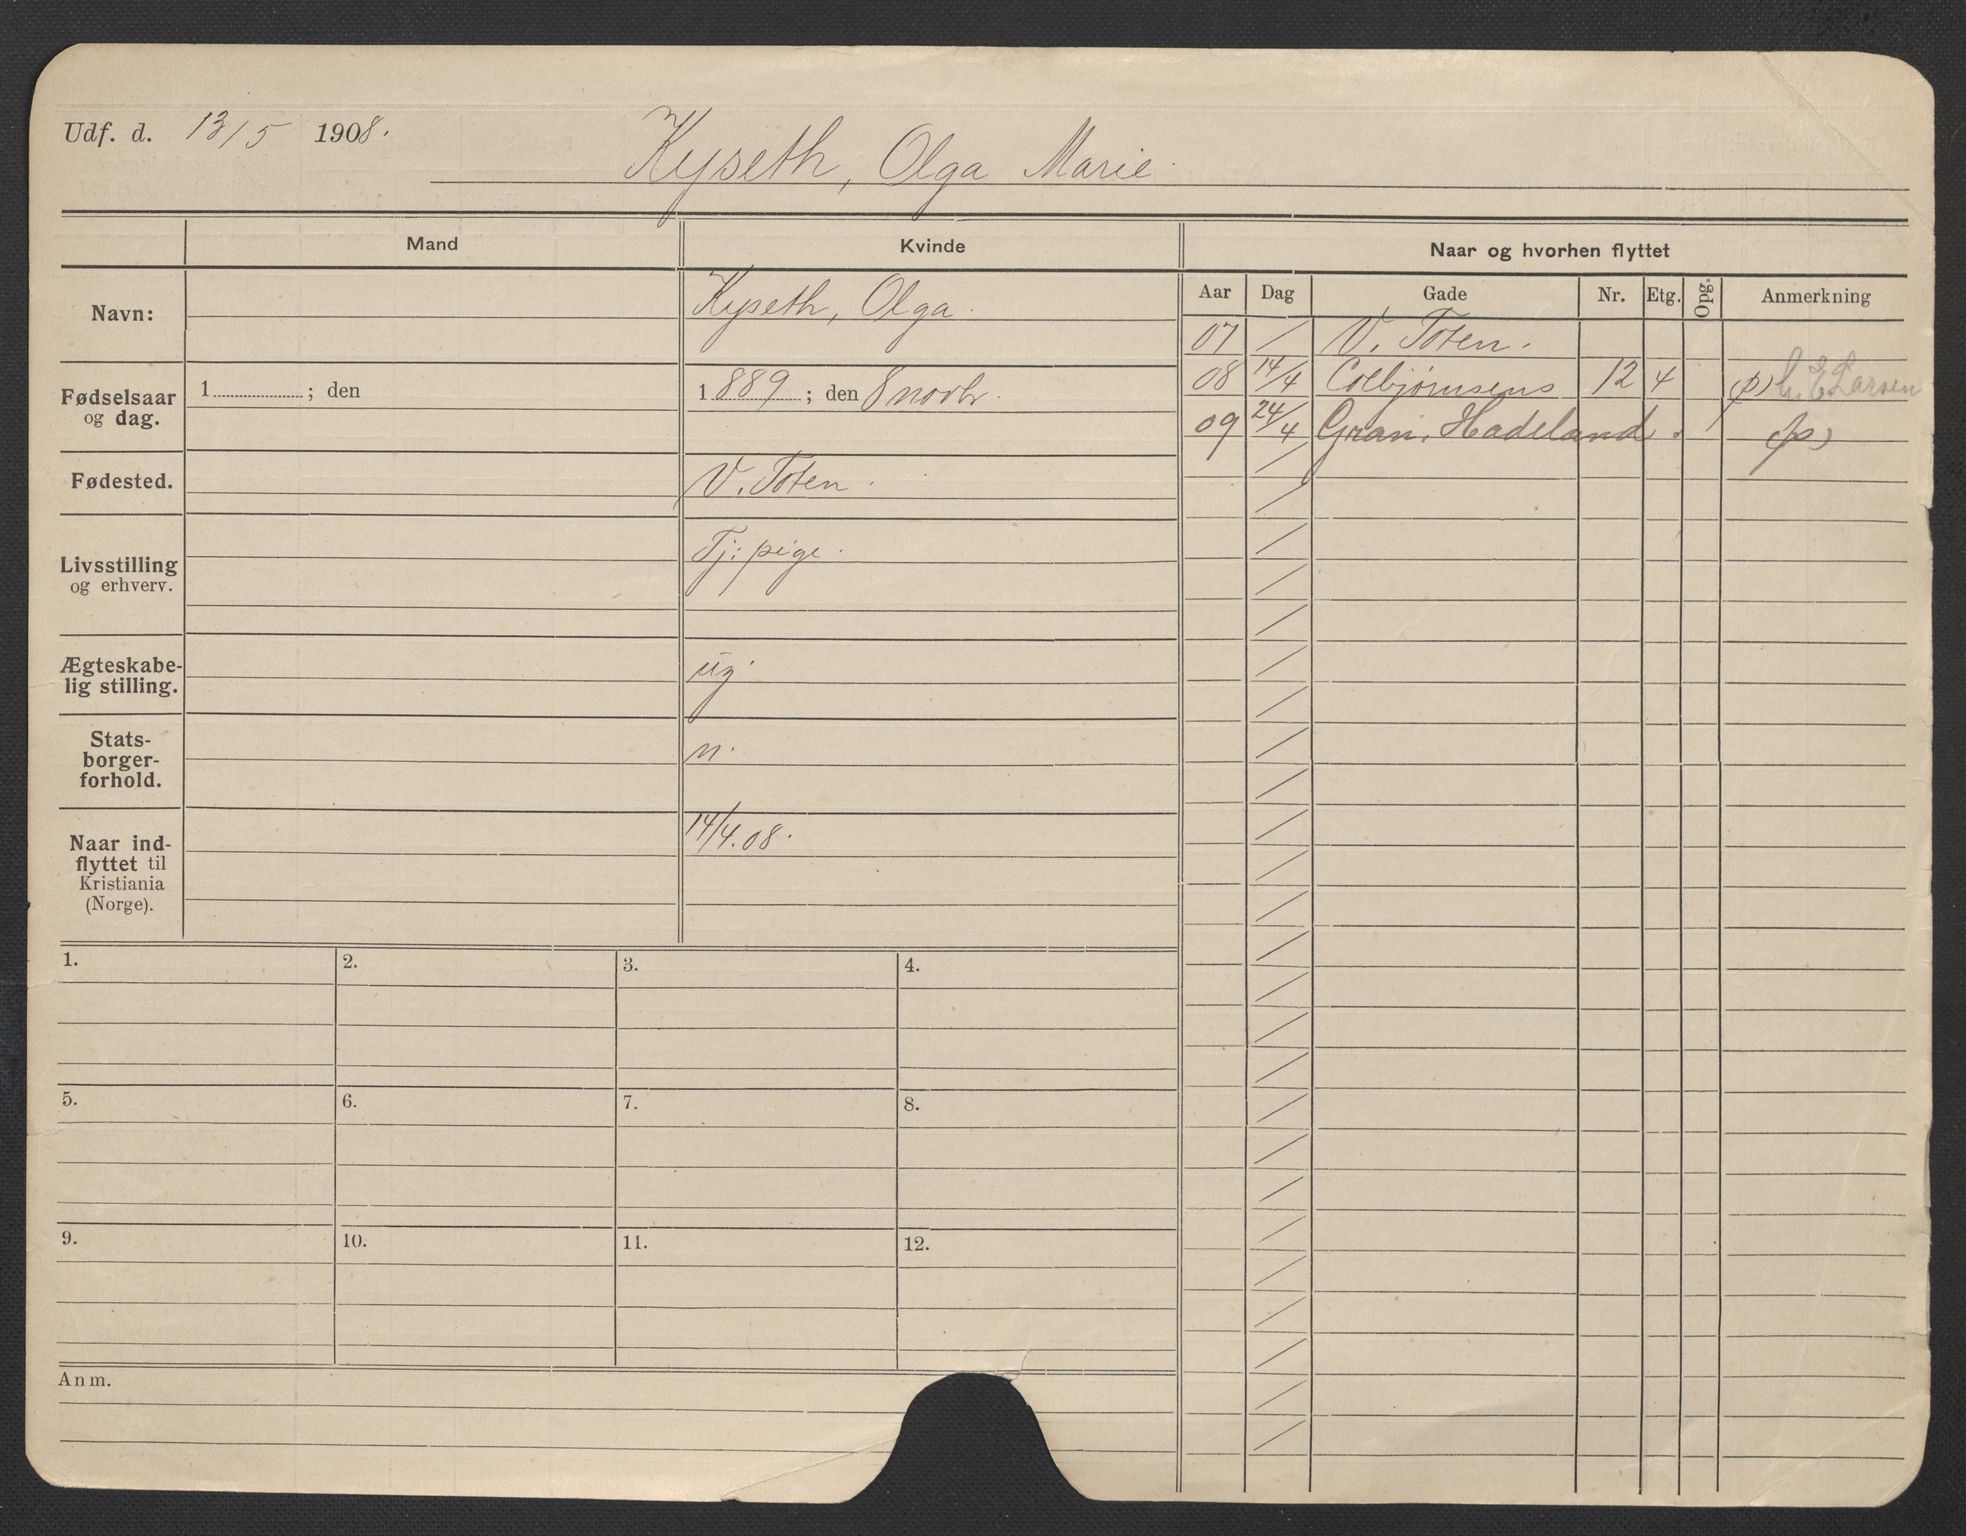 Udf. d. 13/5 1908.
Kyseth, Olga Marie.
Mand Kvinde Naar og hvorhen flyttet
Navn: Kyseth, Olga.
Aar Dag Gade Nr. Etg. Opg. Anmerkning
07 / V. Toten.
08 14/4 Colbjørnsens 12 4 (p) E Larsen
09 24/4 Gran, Hadeland. (p)
Fødselsaar og dag. 1 ; den 1889 ; den 8 novbr.
Fødested. V. Toten.
Livsstilling og erhverv. Tj: pige.
Ægteskabe-
lig stilling. ug.
Stats-
borger-
forhold. n.
Naar ind-
flyttet til
Kristiania
(Norge). 14/4.08.
1. 2. 3. 4.
5. 6. 7. 8.
9. 10. 11. 12.
Anm.